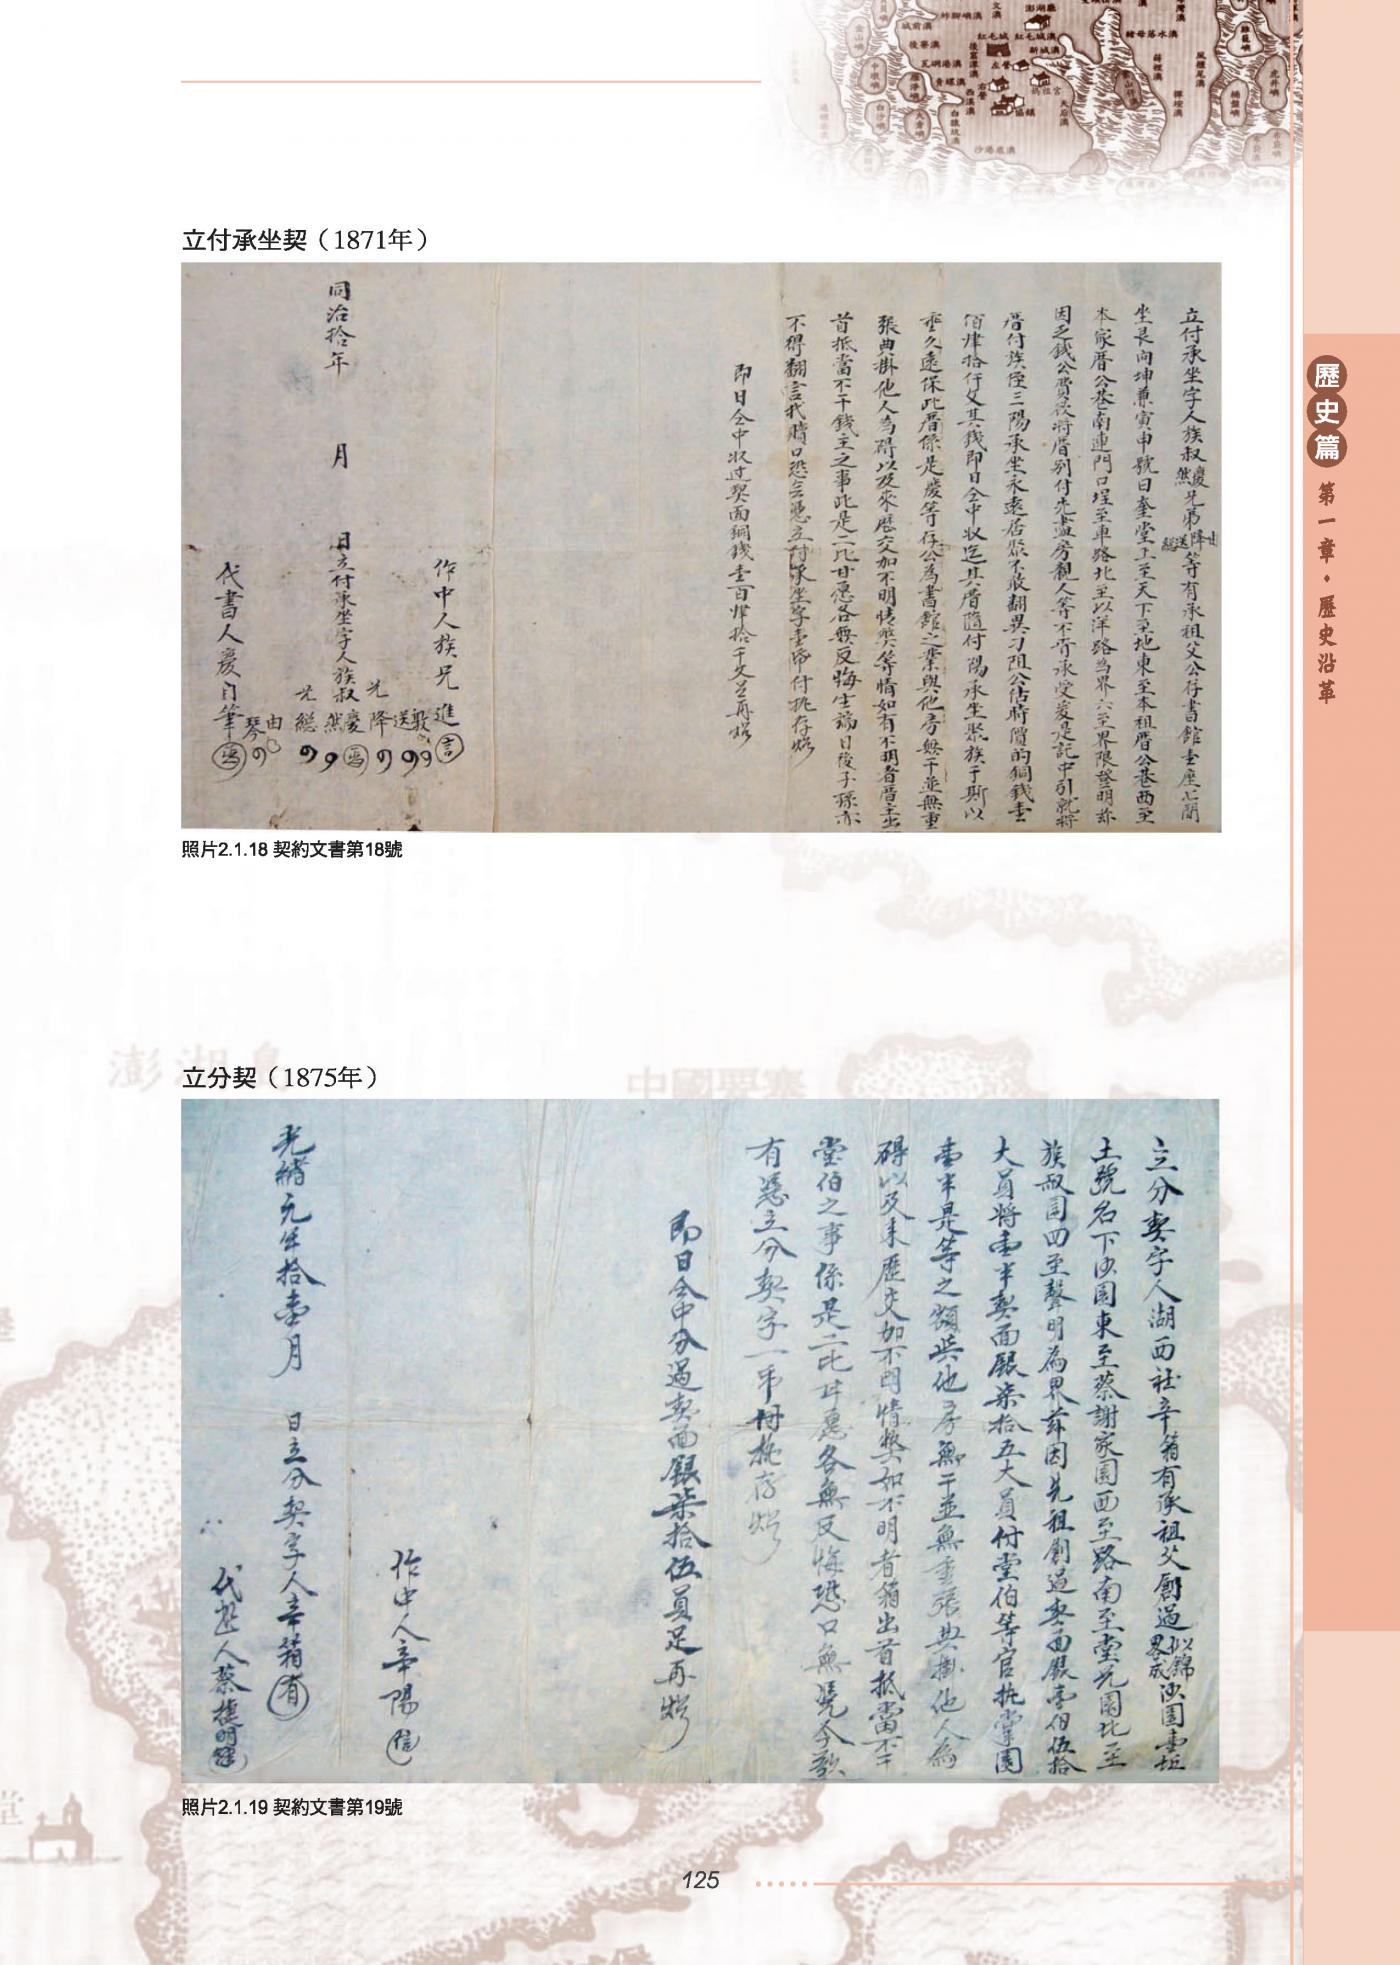 立付承坐契（1871年）
立付承坐字人族叔慶然兄弟等有承祖父公存書館壹座
坐艮向坤兼寅申號曰奎堂上至天下至地東至本祖厝公巷西至
本家厝公巷南連門口埕至車路北至以洋路為界六至界限登明茲
因乏錢公費愿將厝別付先盡房親人等不肯承受爰是託中引就將
厝付族侄三陽承坐永遠居聚不敢翻異刁阻公估時價的銅錢壹
佰肆拾仟文其錢即日仝中收迄其厝隨付陽承坐聚族于斯以
垂久遠保此厝係是慶等存公為書館之業與他房無干並無重
張典掛他人為碍以及來歷交加不明情弊等情如有不明者厝主出
首抵當不干錢主之事此是二比甘愿各無反悔生端日後子孫亦
不得翻言找贖口恐無憑立付承坐字壹帋付執存炤
即日仝中收过契面銅錢壹百肆拾千文足再炤
作中人族兄進
同治拾年 月 日立付承坐字人族叔
代書人慶自筆
照片2.1.18 契約文書第18號
立分契（1875年）
立分契字人湖西社辛箱有承祖父創過沙園壹坵
土號名下沙園東至蔡謝家園西至路南至堂兄園北至
族叔園四至聲明為界茲因先祖創過契面銀壹伯伍拾
大員將壹半契面銀柒拾五大員付堂伯等官执掌園
壹半是等之額與他房無干並無重張典掛他人為
碍以及來歷交加不明情弊如不明者箱出首抵當不干
堂伯之事係是二比甘愿各無反悔恐口無憑今欲
有憑立分契字一帋付执存炤
即日仝中分過契面銀柒拾伍員足再炤
作中人辛陽
光緒元年拾壹月 日立分契字人辛箱
代書人蔡捷明
照片2.1.19 契約文書第19號
125
歷史篇
第一章・歷史沿革